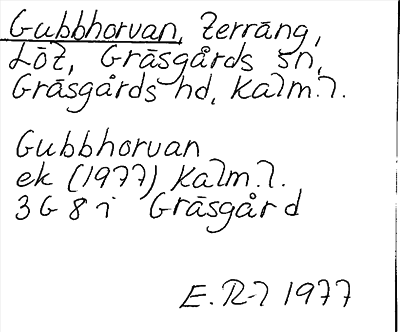 Gubbhorvan, terräng,
Löt, Gräsgårds sn,
Gräsgårds hd, Kalm.l.
Gubbhorvan
ek (1977) Kalm.l.
3G 8i Gräsgård
E.R-l 1977